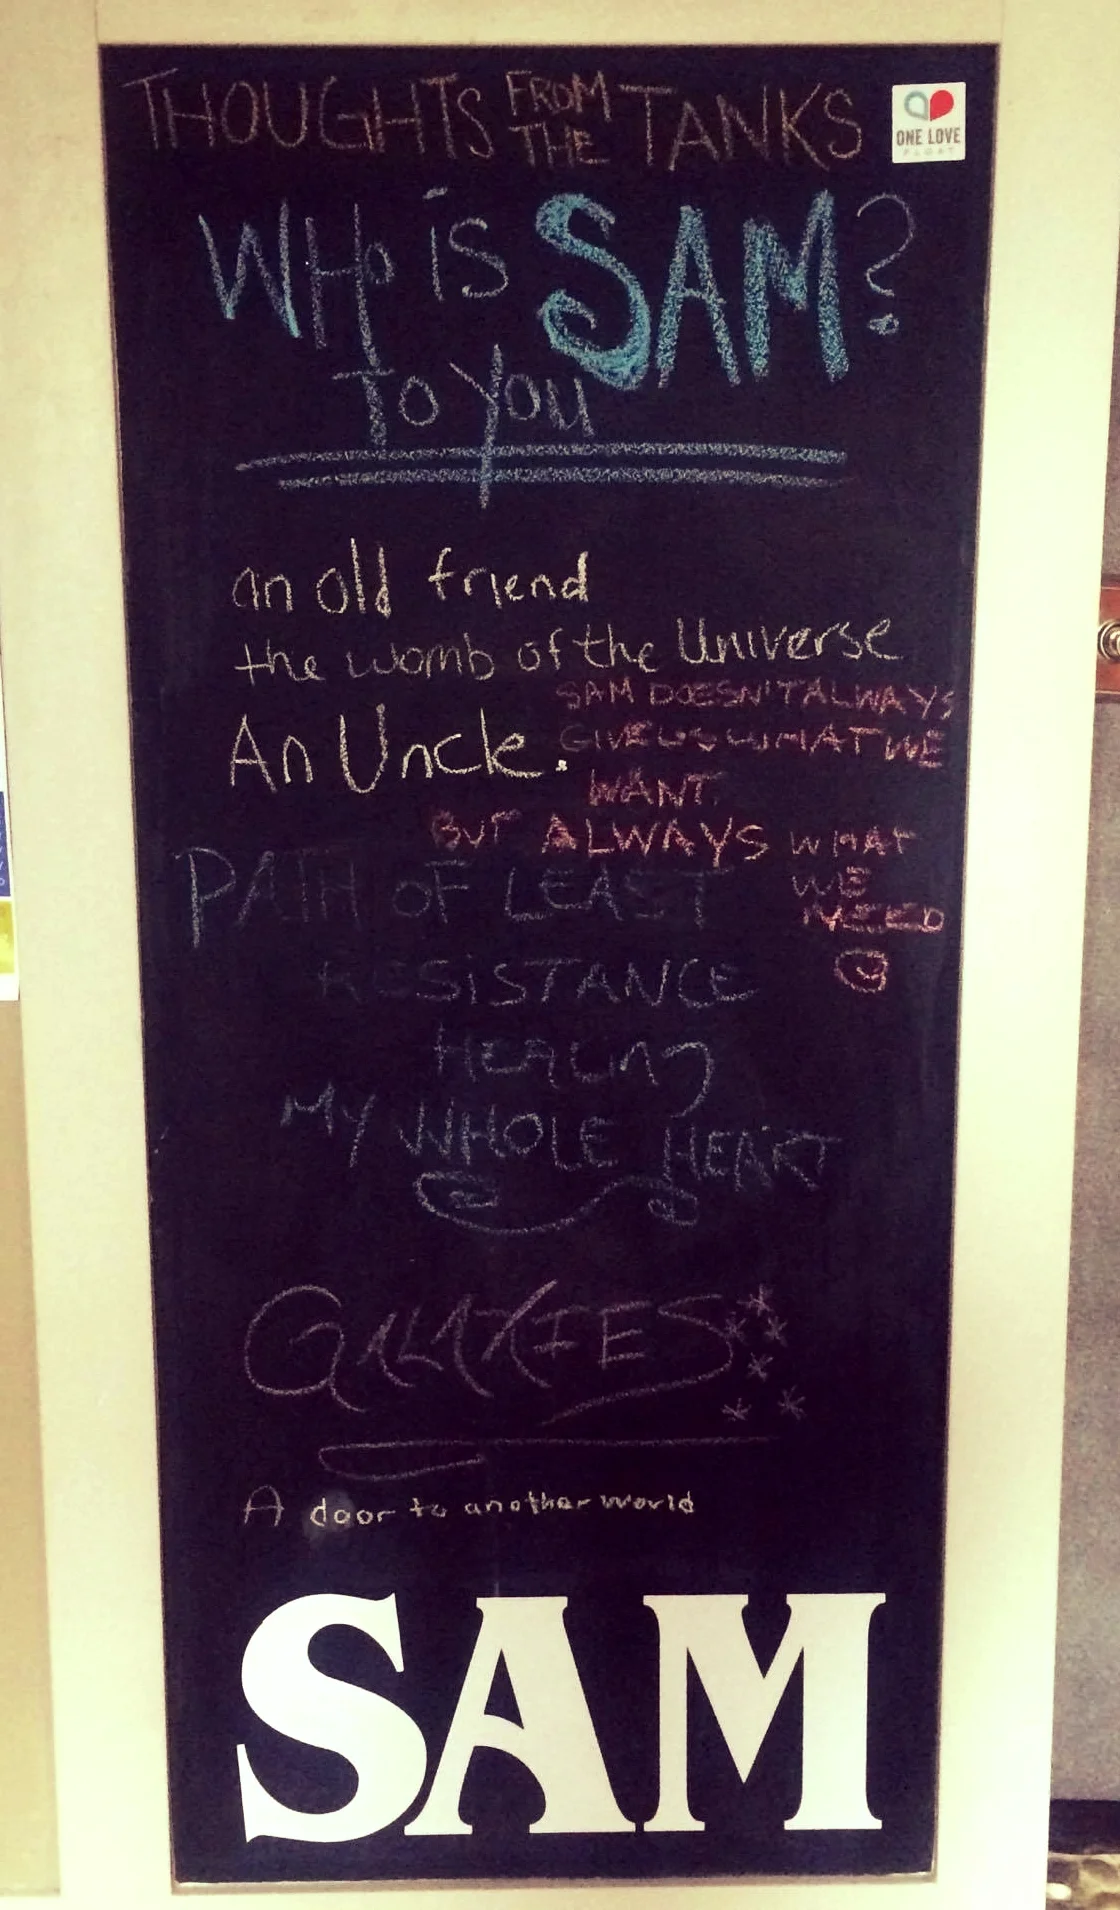 THOUGHTS FROM THE TANKS
ONE LOVE
FLOAT
WHo iS SAM?
To You
an old friend
the womb of the Universe
An Uncle.
SAM DOESN'T ALWAYS
GIVE US WHAT WE
WANT.
BUT ALWAYS WHAT
WE
NEED
PATH OF LEAST
RESiSTANCE
HEALING
MY WHOLE HEART
GALAXIES
A door to another world
SAM